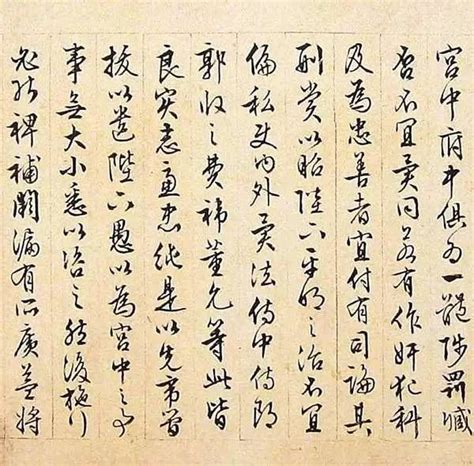 宮中府中俱為一體陟罰臧
否不宜異同若有作奸犯科
及為忠善者宜付有司論其
刑賞以昭陛下平明之治不宜
偏私使內外異法侍中侍郎
郭攸之費禕董允等此皆
良实志慮忠純是以先帝簡
拔以遺陛下愚以為宮中之事
事無大小悉以咨之然後施行
必能裨補闕漏有所廣益將